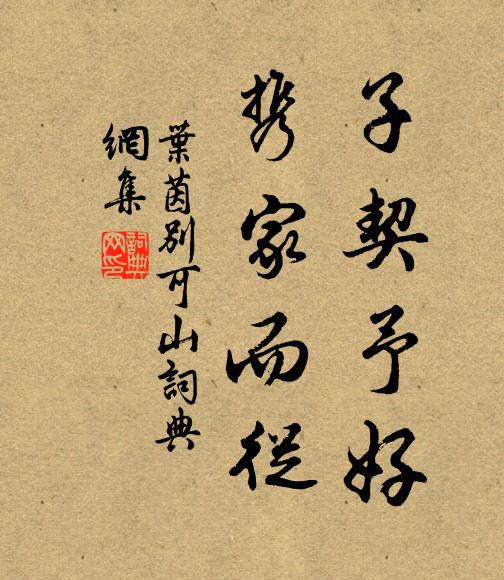 子契予好
携家而從
葉茵別可山詞典
網集
詞典
网印